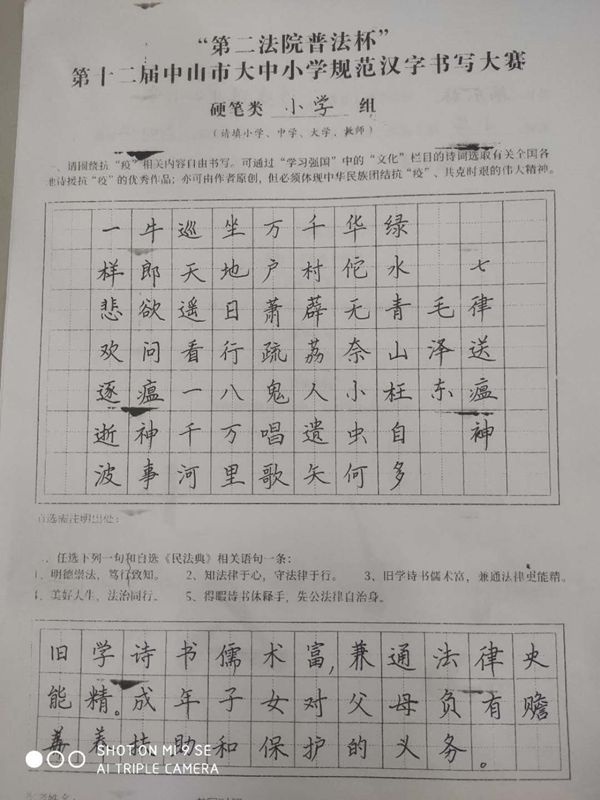 “第二法院普法杯”
第十二届中山市大中小学规范汉字书写大赛
硬笔类 小学 组
（请填小学、中学、大学、教师）
一、请围绕抗“疫”相关内容自由书写。可通过“学习强国”中的“文化”栏目的诗词选取有关全国各
地诗援抗“疫”的优秀作品；亦可由作者原创，但必须体现中华民族团结抗“疫”、共克时艰的伟大精神。
七律送瘟神
毛泽东
绿水青山枉自多
华佗无奈小虫何
千村薜荔人遗矢
万户萧疏鬼唱歌
坐地日行八万里
巡天遥看一千河
牛郎欲问瘟神事
一样悲欢逐逝波
自选需注明出处：
任选下列一句和自选《民法典》相关语句一条：
1、明德崇法，笃行致知。 2、知法律于心，守法律于行。 3、旧学诗书儒术富，兼通法律更能精。
4、美好人生，法治同行。 5、得暇诗书休释手，先公法律自治身。
旧学诗书儒术富，兼通法律
能精。成年子女对父母负有赡
养扶助和保护的义务。
SHOT ON MI 9 SE
AI TRIPLE CAMERA